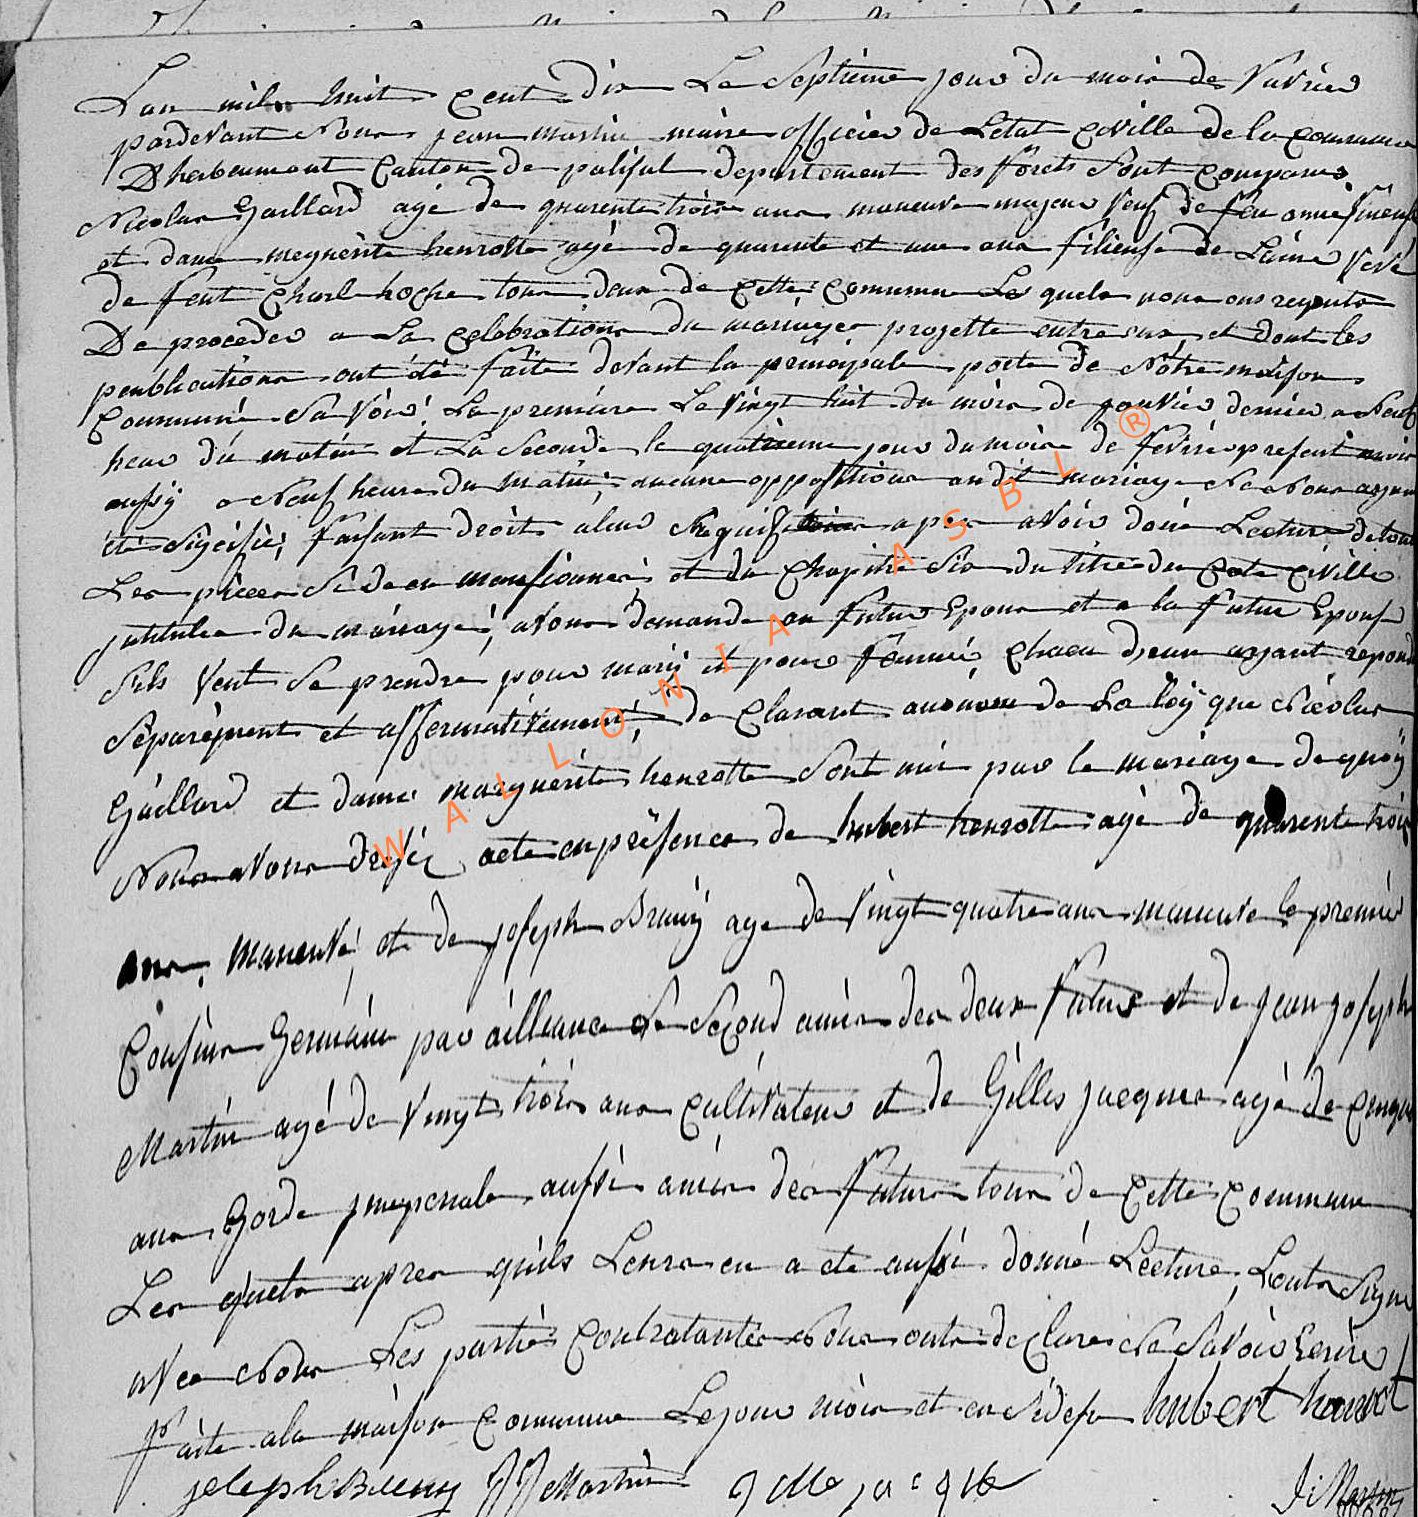 L'an mil huit cent dix Le septieme jour du mois de Favrier
pardevant Nous jean martin maire officier de Letat Civille de la Commune
D'herbeumont Canton de paliseul departement des forêts Sont Comparus
Nicolas Gaillard agé de quarente trois ans maneuvre majeur veuf de feu anne
et dame megnerite henrotte agé de quarente et une ans filieuse de Laine veve
de feut Charl hoche tous deux de Cette Commune Les quels nous ons requits
De proceder a La Celebrations du mariage projette entre eux et dont les
peublications ont été faite devant la principale porte de Nôtre maison
Commune Savoir La premiere Le vingt huit du mois de janvier dernier a Neuf
heur du matin et La Seconde le quatrieme jour du mois de fevrie present mois
aussy a Neuf heure du matin, aucune oppositions au dit mariage Ne Nous ayant
été Signifié, faisant droits a leur Requisitions apres avoir doné Lecture de toute
Les pièces Si desus mensionnés et du Chapitre Six du titre du Code Civille
jntitulée du mariage, avons demande au futur Epoux et a la futur Epouse
Sils veut Se prendre pour mary et pour femme Chacun deux ayant repondu
Separément et affermativement, de Clarant au nom de La loÿ que Nicolas
Gaillard et dame marguerite henrotte Sont unis par le mariage de quoÿ
Nous avons dressé acte en présence de hubert henrotte agé de quarente trois
ans, maneuvre, et de joseph Bruny age de vingt quatre ans maneuvre le premier
Cousins Germain par aillance Le Second amis des deux futurs et de jean joseph
Martin agé de vingt trois ans Cultivateur et de Gilles jacques agé de Cinqu
ans Garde jmperiale aussi amis des futurs tous de Cette Commune
Les quels apres quils Leurs en a ete aussi donné Lecture, L'onts Signé
avec Nous Les parties Contratantes Nous onts declare Ne Savoir Ecrire
Faite a la maison Commune Le jour mois et en Sidesu hubert henrot
joseph Bruny JJ Martin gille jacque J: Martin
WALLONIA ASBL ®